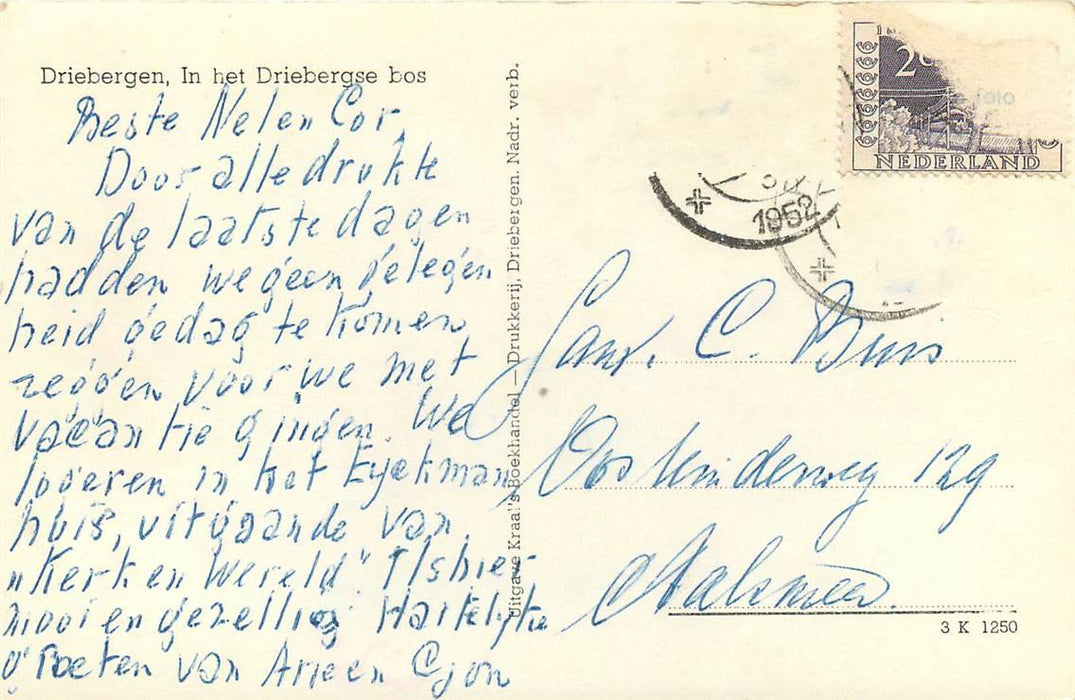 Driebergen, In het Driebergse bos
Beste Nel en Cor,
Door alle drukte
van de laatste dagen
hadden we geen gelegen
heid gedag te komen
zeggen voor we met
vacantie gingen. We
logeren in het Eyckman
huis, uitgaande van
"Kerk en Wereld" 't Is hier
mooi en gezellig Hartelijke
groeten van Arie en
Uitgave Kraal's Boekhandel — Drukkerij, Driebergen. Nadr. verb.
2
NEDERLAND
1952
Fam. C. Buis
Oosteinderweg 129
Aalsmeer.
3 K 1250